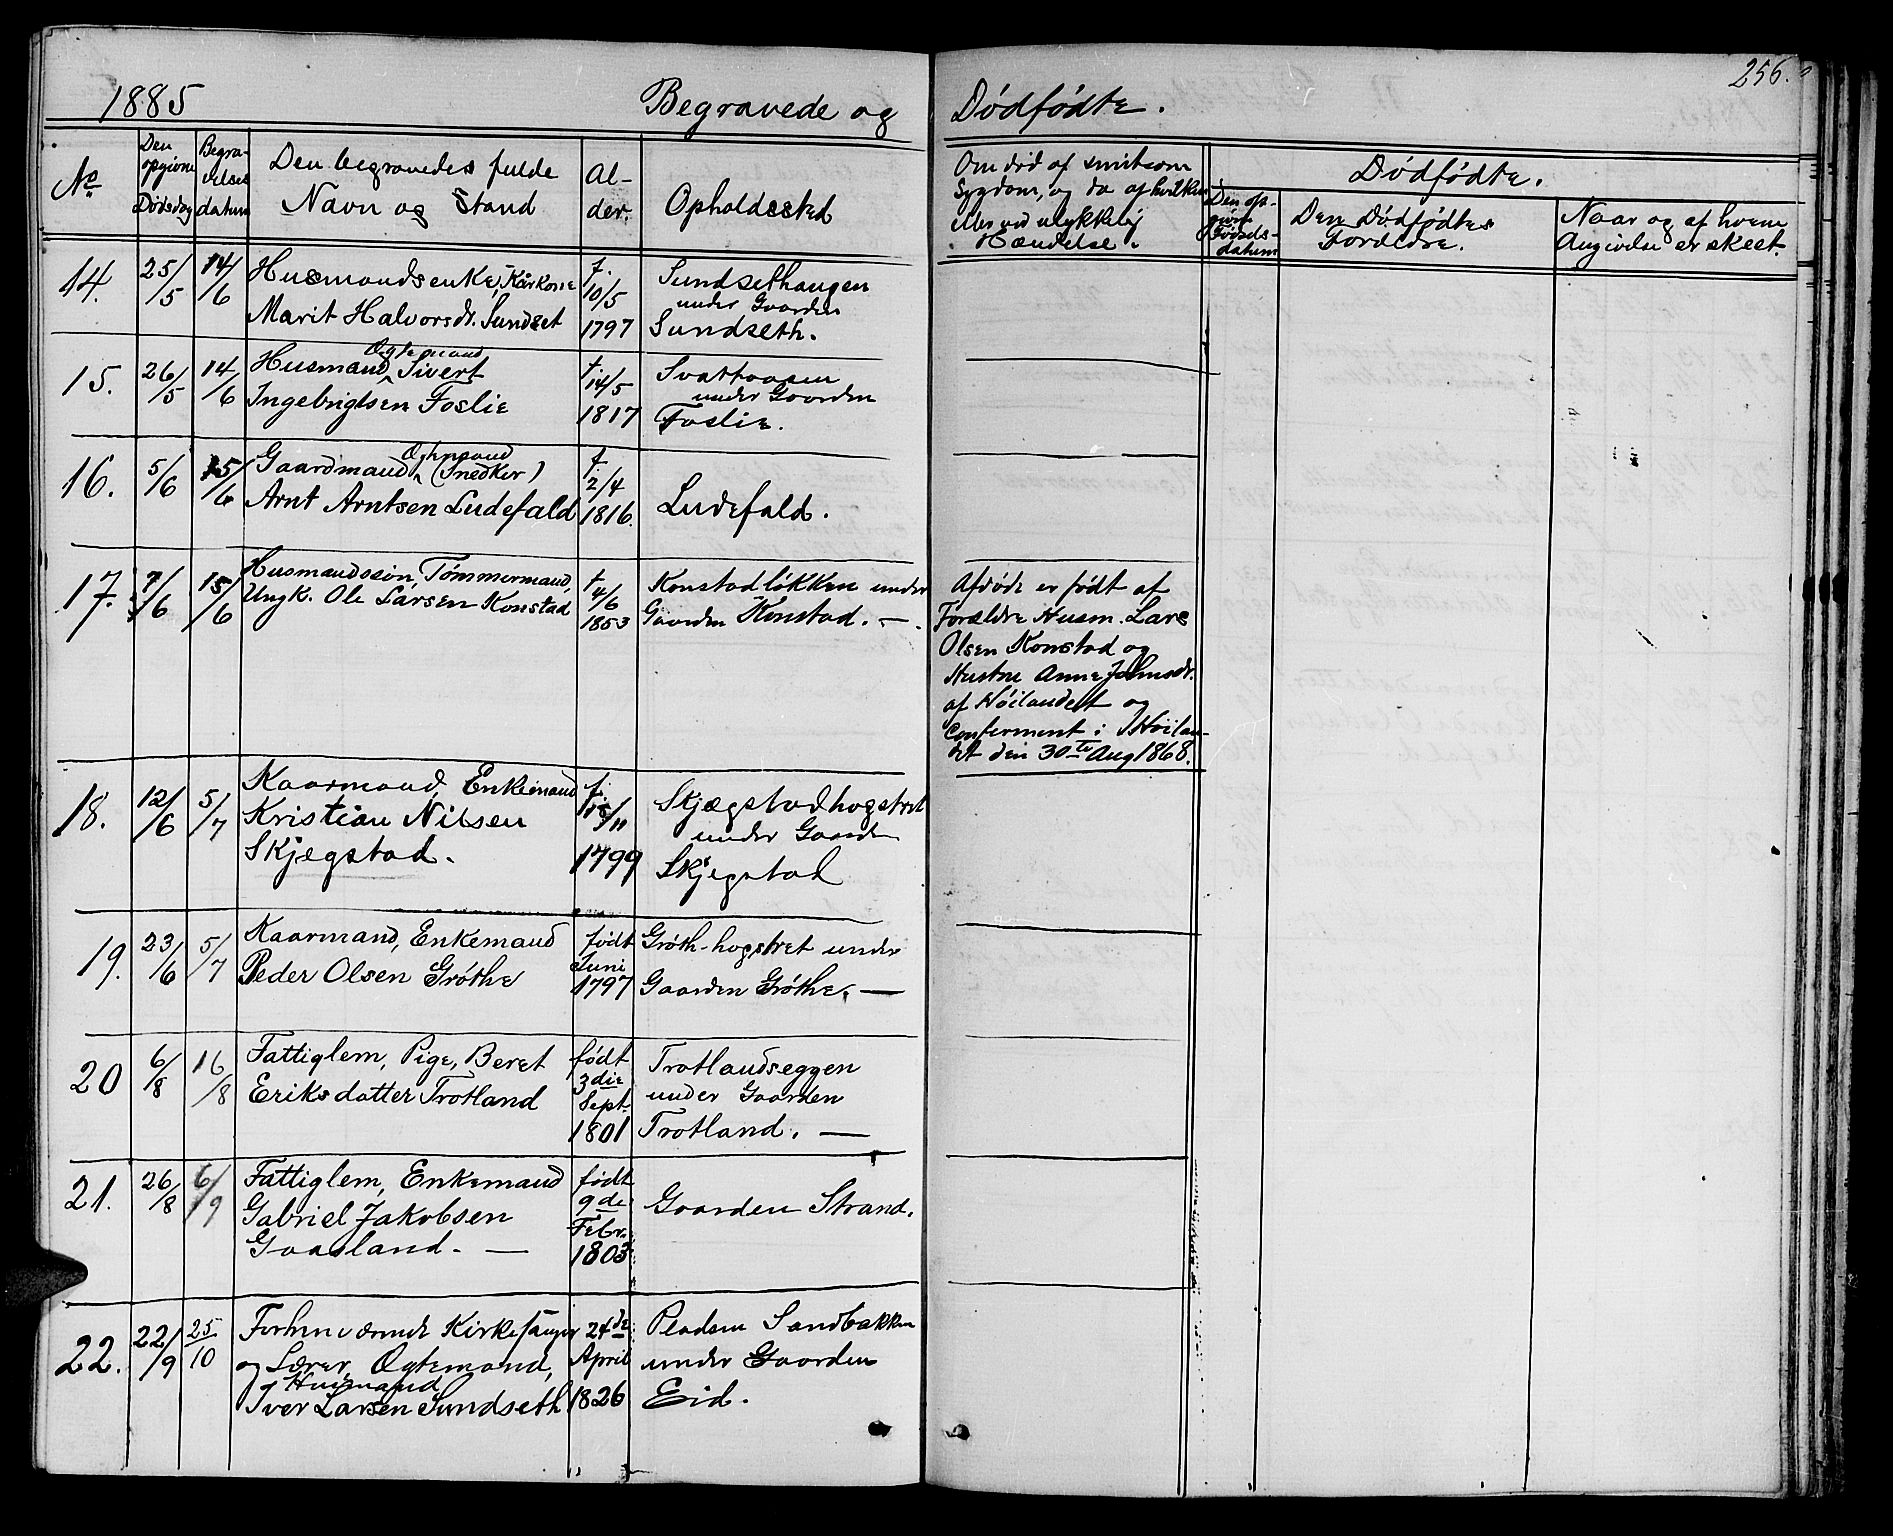 256.
1885 Begravede og Dødfødte.
No
Den opgivne Dødsdag
Begravelses datum
Den begravedes fulde Navn og Stand
Alder.
Opholdssted
Om død af smitsom
Sygdom, og da af hvilken
eller ved ulykkelig
Hændelse.
Dødfødte.
Den opgivne Fødselsdatum
Den Dødfødtes Forældre.
Naar og af hvem
Angivelse er skeet.
14. 25/5 14/6 Husmandsenke, Kårkone
Marit Halvorsdr. Sundset
f. 10/5 1797
Sundsethaugen
under Gaarden
Sundseth.
15. 26/5 14/6 Husmand, Ægtemand Sivert
Ingebrigtsen Foslie
f. 14/5 1817
Svarthaasen
under Gaarden
Foslie.
16. 5/6 15/6 Gaardmand Ægtemand (Snedker)
Arnt Arntsen Ludefald
f. 2/4 1816.
Ludefald.
17. 7/6 15/6 Husmandssøn, Tømmermand,
Ungk. Ole Larsen Konstad
f. 4/6 1853
Konstadløkken under
Gaarden Konstad. —.
Afdøde er født af
Forældre Husm. Lars
Olsen Konstad og
Hustru Anne Johnsdr.
af Høilandet og
Confermert i Høilan-
det den 30te Aug 1868.
18. 12/6 5/7 Kaarmand, Enkemand
Kristian Nilsen
Skjægstad.
f. 18/11 1799
Skjægstadhogstret
under Gaarden
Skjegstad
19. 23/6 5/7 Kaarmand, Enkemand
Peder Olsen Grøthe
født Juni 1797
Grøth-hogstret under
Gaarden Grøthe. —
20 6/8 16/8 Fattiglem, Pige, Beret
Eriksdatter Trotland
født 3die Sept. 1801
Trotlandseggen
under Gaarden
Trotland. —
21. 26/8 6/9 Fattiglem, Enkemand
Gabriel Jakobsen
Gaasland. —
født 9de Febr. 1803
Gaarden Strand.
22. 22/9 25/10 Forhenværende Kirkesanger
og Lærer, Ægtemand,
Husmand
Iver Larsen Sundseth
24de April 1826
Pladsen Sandbakken
under Gaarden
Eid.